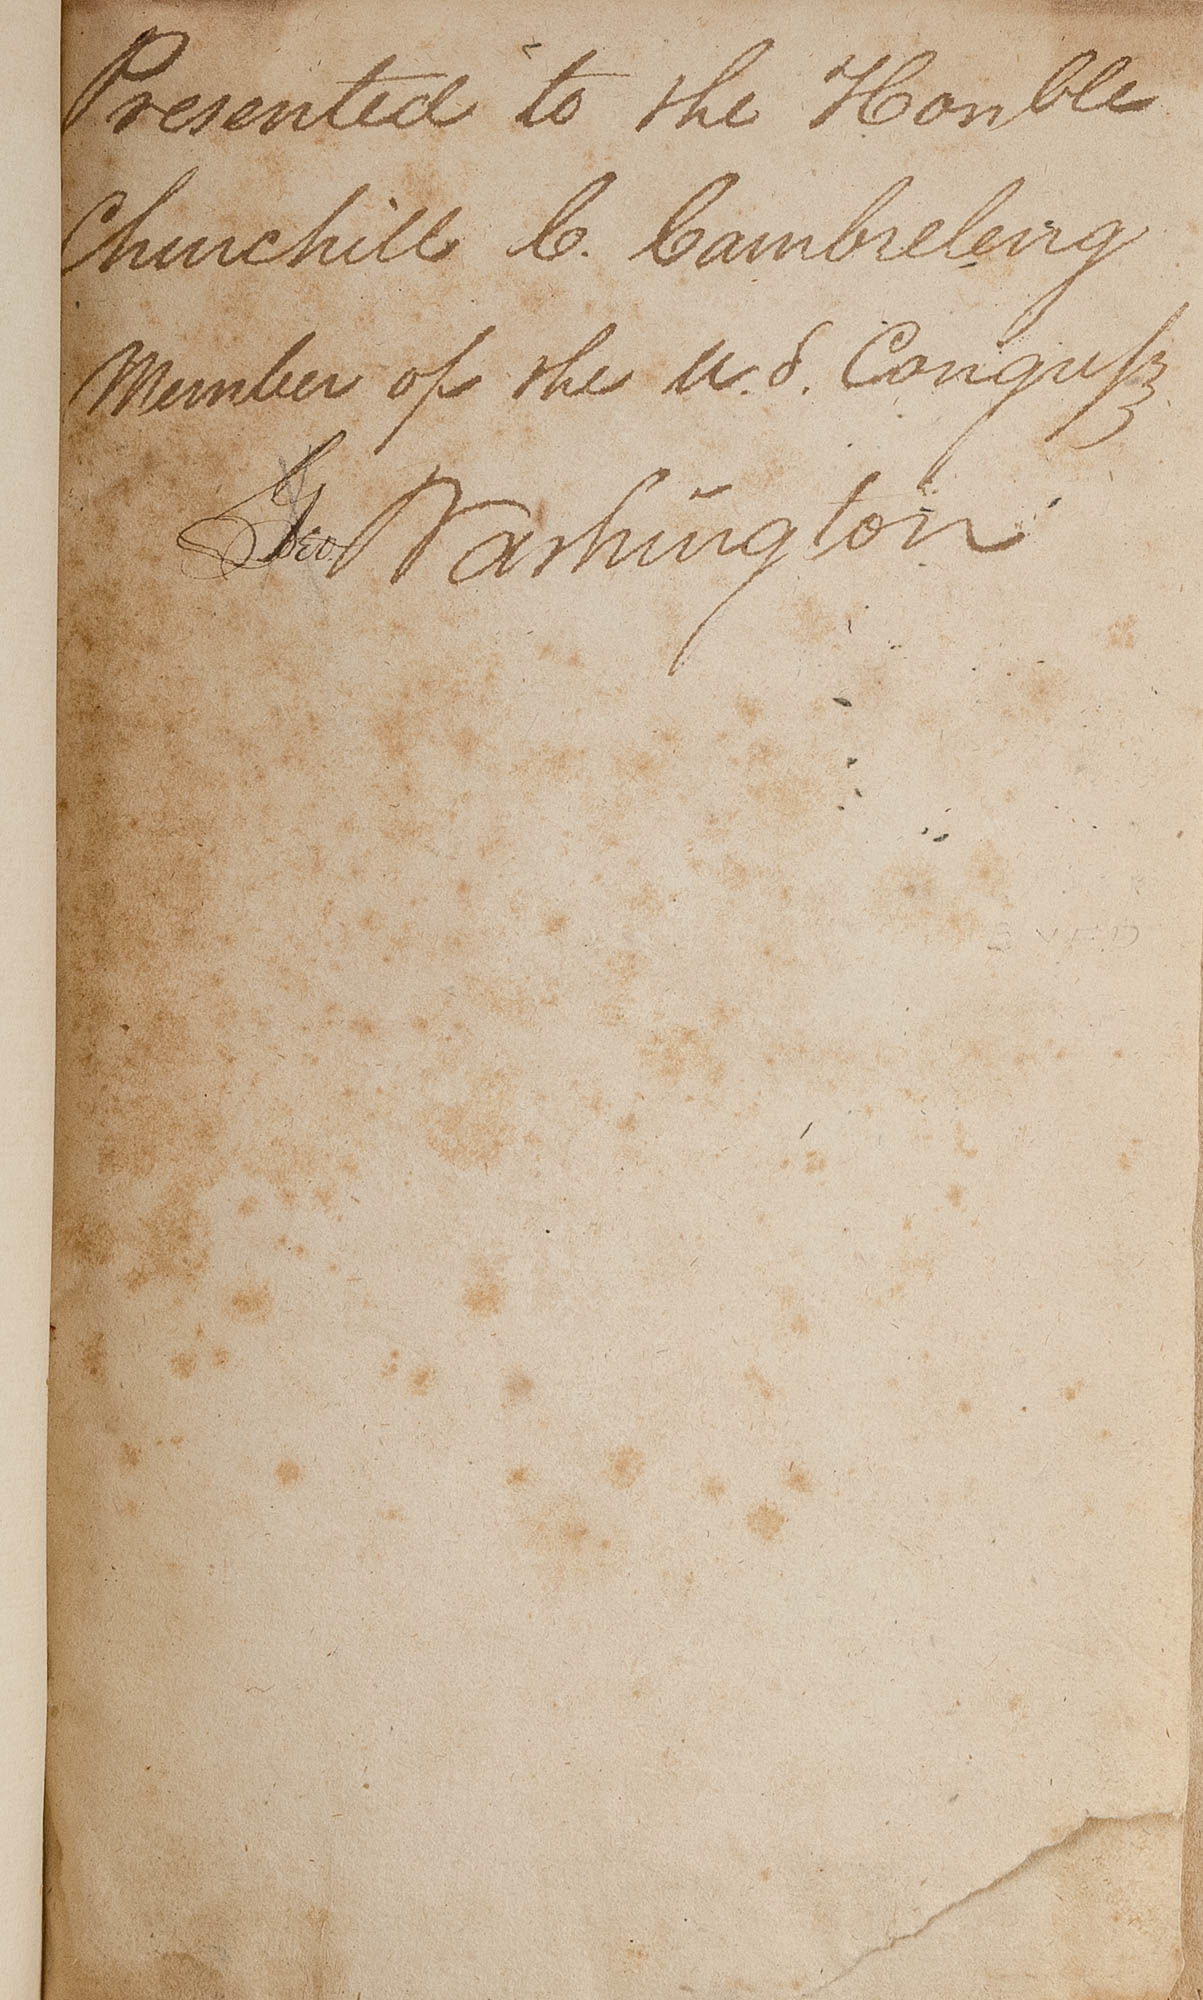 Presented to the Honble
Churchill C. Cambreleng
Member of the U.S. Congress
Geo Washington